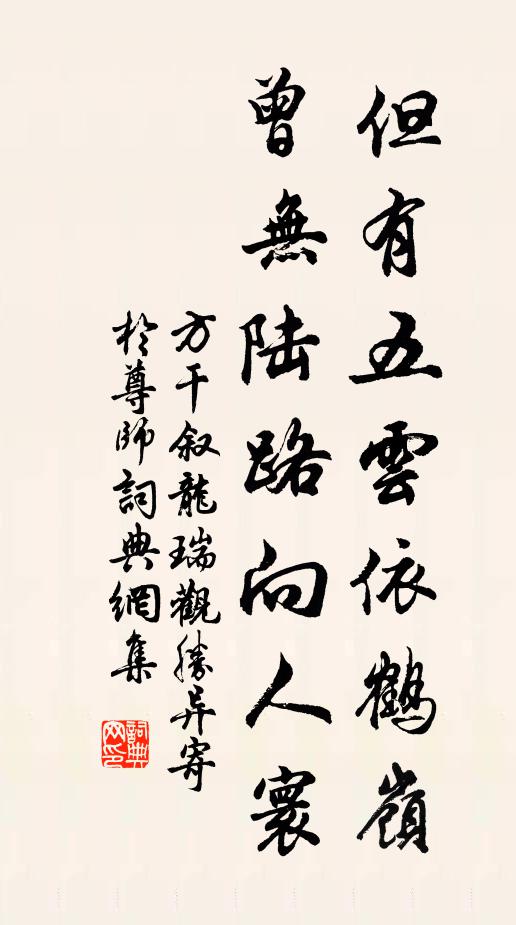 但有五雲依鶴嶺
曾無陸路向人寰
方干叙龍瑞觀勝异寄
於尊師詞典網集
詞典
网印